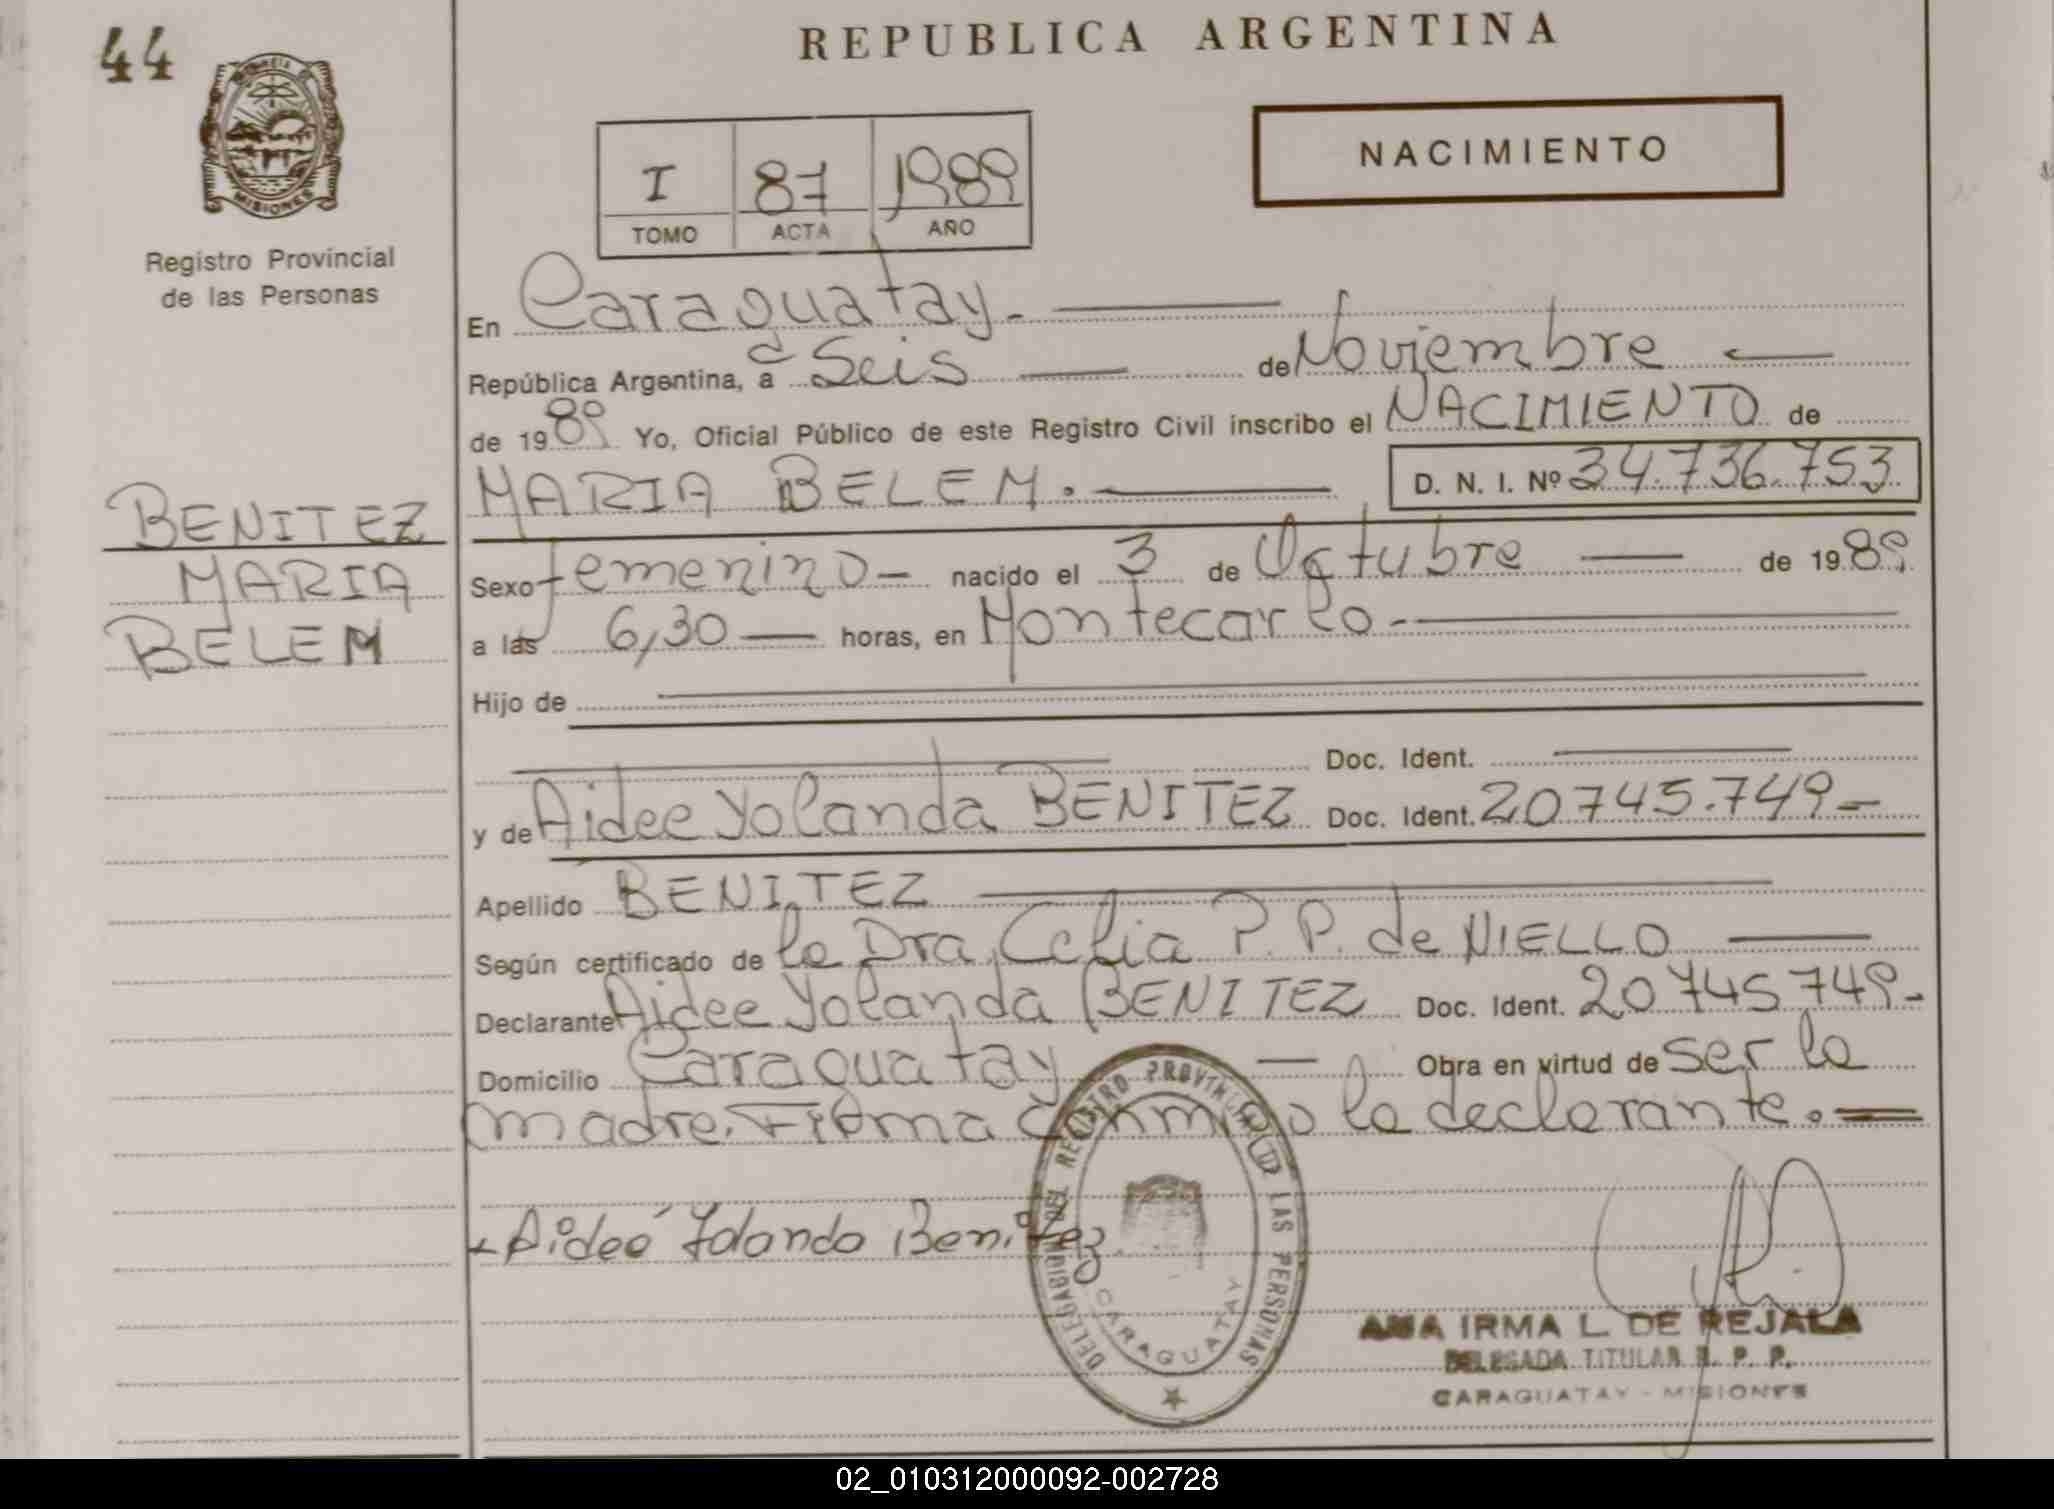 44
REPUBLICA ARGENTINA
MISIONES
Registro Provincial
de las Personas
I 87 1989
TOMO ACTA AÑO
NACIMIENTO
En Caraguatay.
República Argentina, a Seis de Noviembre
de 1989 Yo, Oficial Público de este Registro Civil inscribo el NACIMIENTO de
MARIA BELEM. D. N. I. Nº 34.736.753
BENITEZ
MARIA
BELEM
Sexo femenino nacido el 3 de Octubre de 1989
a las 6,30 horas, en Montecarlo
Hijo de
Doc. Ident.
y de Aidee Yolanda BENITEZ Doc. Ident. 20745.749
Apellido BENITEZ
Según certificado de la Dra. Celia P. P. de NIELLO
Declarante Aidee Yolanda BENITEZ Doc. Ident. 20745749
Domicilio Caraguatay Obra en virtud de ser la
madre. Firma conmigo la declarante.
Aideé Yolanda Benitez
DELEGACION DEL REGISTRO PROVINCIAL DE LAS PERSONAS
CARAGUATAY
ANA IRMA L. DE REJALA
DELEGADA TITULAR R. P. P.
CARAGUATAY - MISIONES
02_010312000092-002728